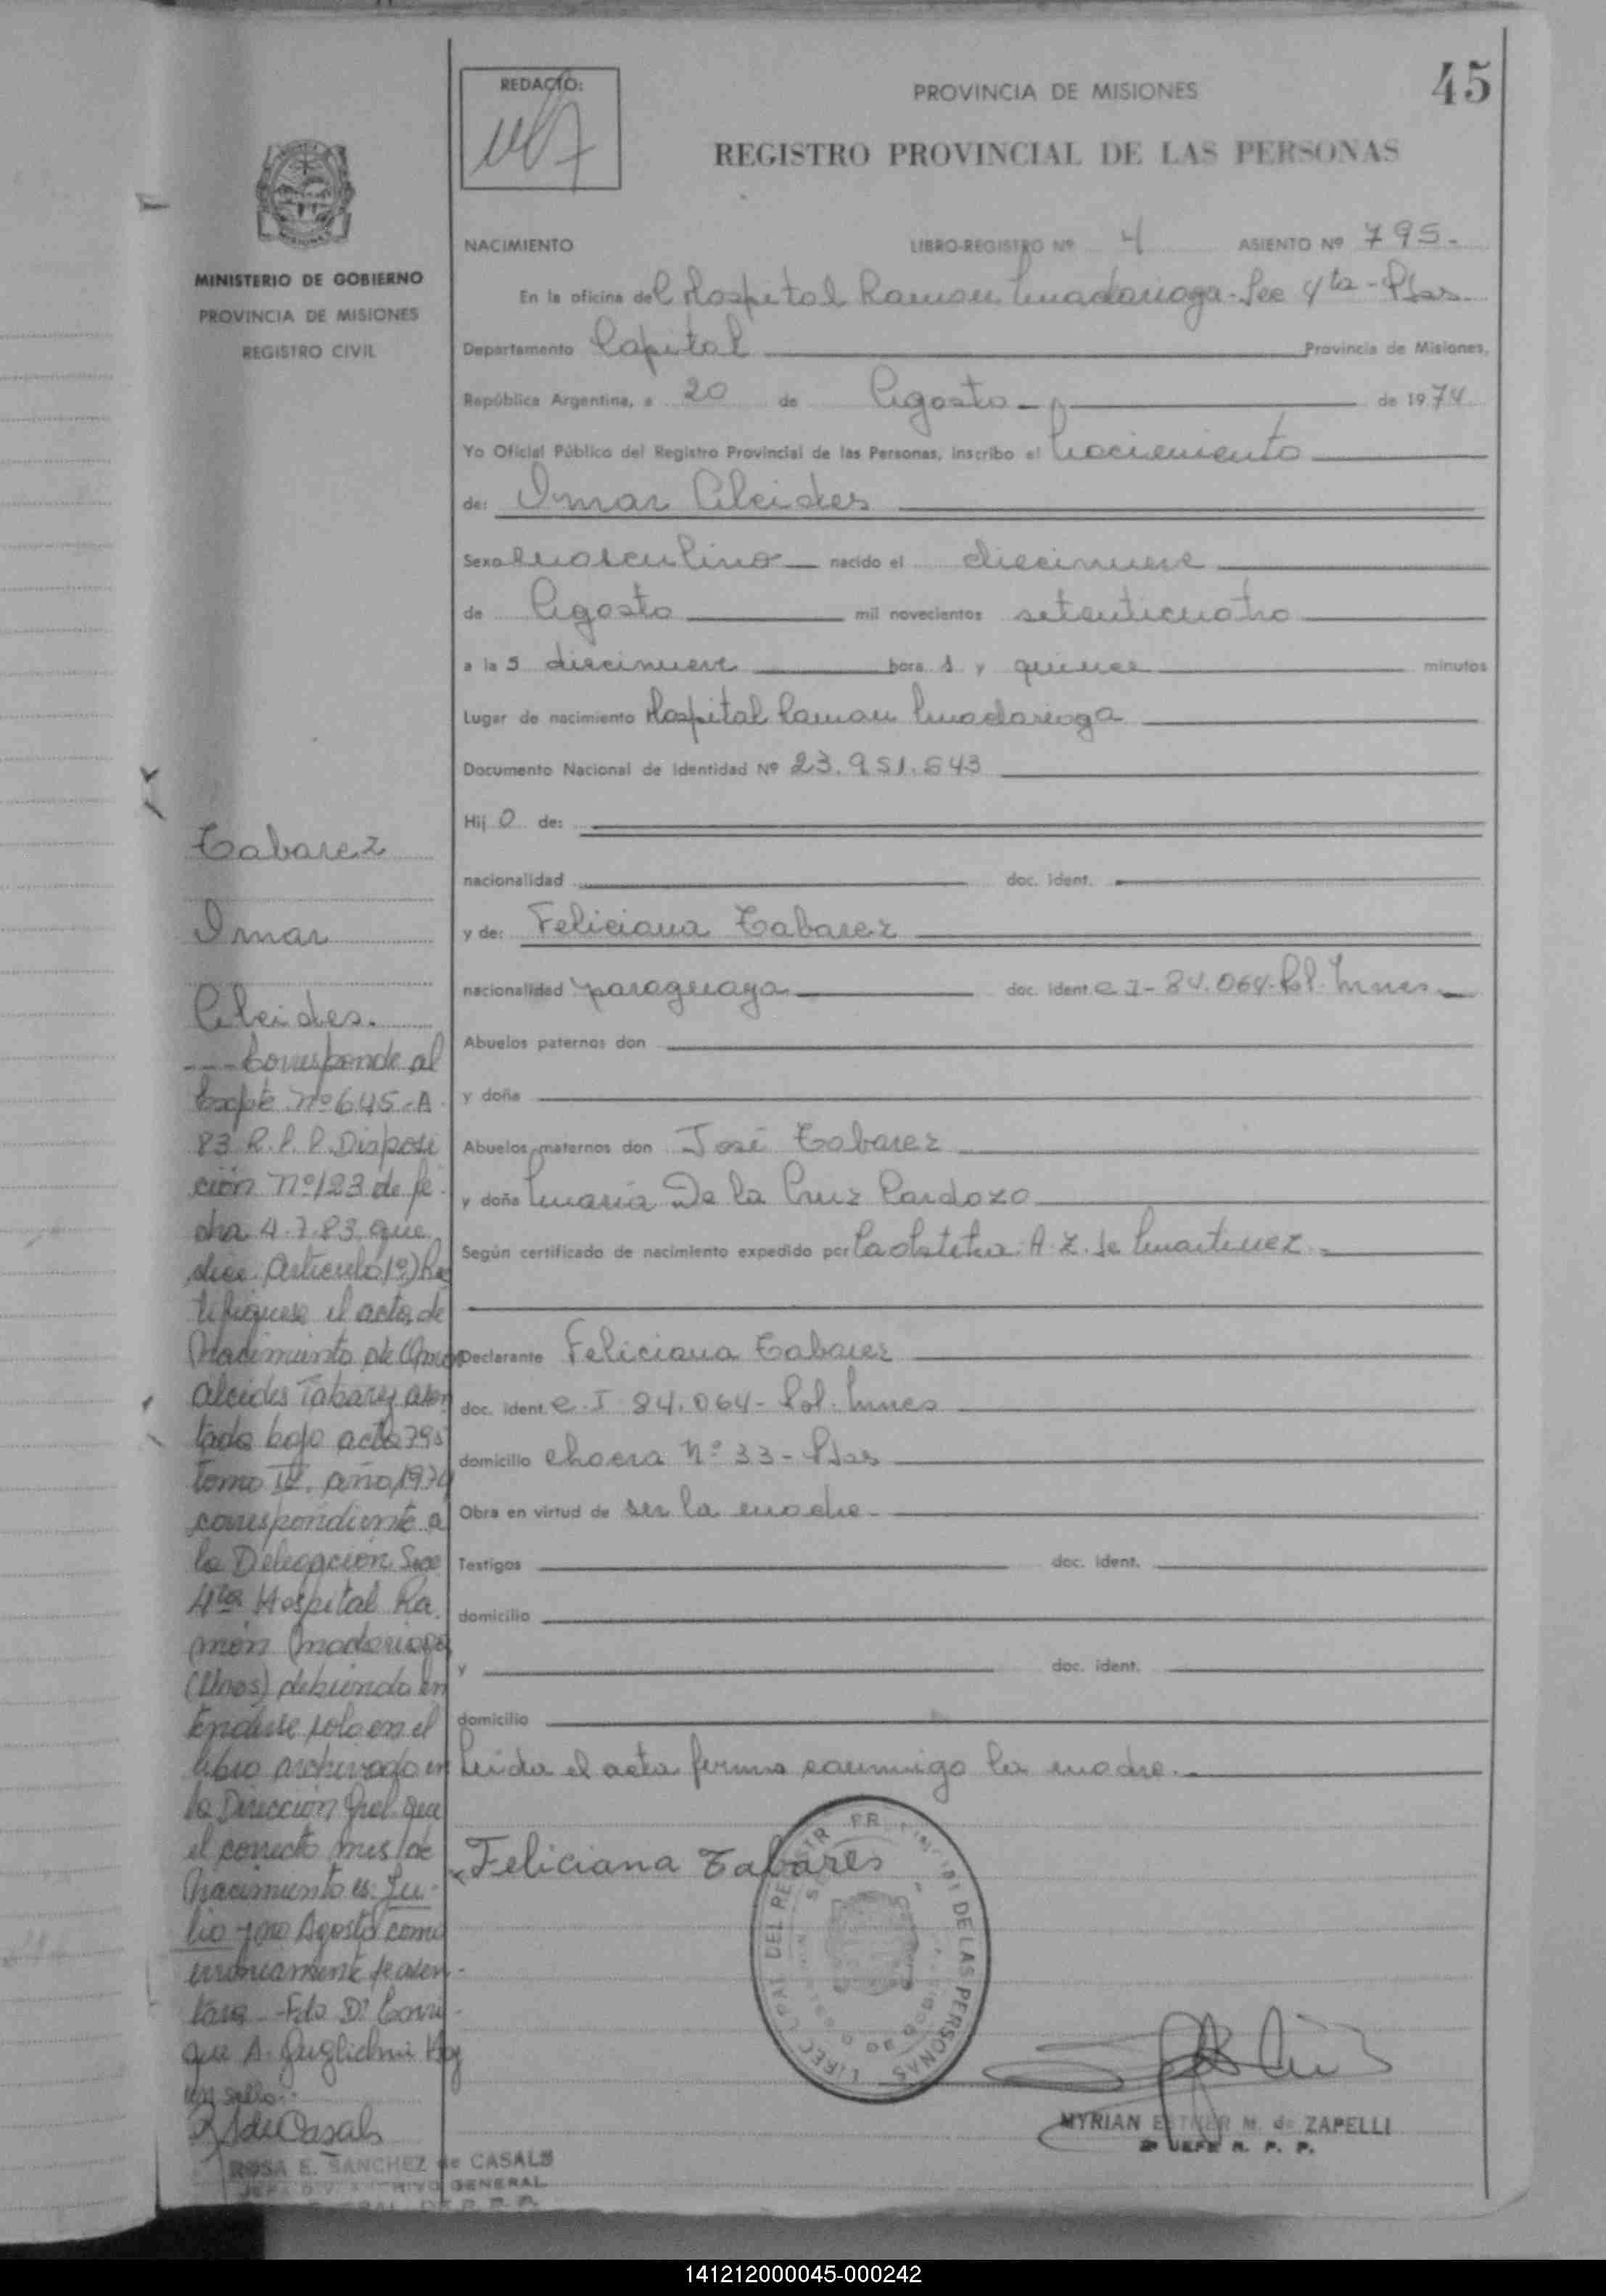 REDACTO:
PROVINCIA DE MISIONES
45
REGISTRO PROVINCIAL DE LAS PERSONAS
NACIMIENTO LIBRO-REGISTRO Nº 4 ASIENTO Nº 795.-
MINISTERIO DE GOBIERNO
PROVINCIA DE MISIONES
REGISTRO CIVIL
En la oficina del Hospital Ramon Madariaga - Sec 4ta - Pdas
Departamento Capital Provincia de Misiones,
República Argentina, a 20 de Agosto de 1974
Yo Oficial Público del Registro Provincial de las Personas, inscribo el Nacimiento
de: Omar Alcides
Sexo masculino nacido el diecinueve
de Agosto mil novecientos setenticuatro
a la s diecinueve hora s y quince minutos
Lugar de nacimiento Hospital Ramon Madariaga
Documento Nacional de Identidad Nº 23.951.643
Hij o de:
nacionalidad doc. ident.
y de: Feliciana Tabarez
nacionalidad paraguaya doc. ident C I - 84.064 - Pol. Mnes
Abuelos paternos don
y doña
Abuelos maternos don José Tabarez
y doña María De la Cruz Cardozo
Según certificado de nacimiento expedido por La obstetra A. Z. de Martinez
Declarante Feliciana Tabarez
doc. ident. C. I 84.064 - Pol. Mnes
domicilio chacra Nº 33 - Pdas
Obra en virtud de ser la madre
Testigos doc. ident.
domicilio
y doc. ident.
domicilio
Leida el acta firma conmigo la madre.
Feliciana Tabares
DEL REGISTR PROVINCIAL DE LAS PERSONAS
MYRIAN ESTHER M. de ZAPELLI
2º JEFE R. P. P.
Tabarez
Omar
Alcides.
---Corresponde al
Expte Nº 645-A
83 R.P.P. Disposi
ción Nº 123 de fe
cha 4.7.83 que
dice Artículo 1º) Rec
tifiquese el acta de
Nacimiento de Omar
Alcides Tabarez asen
tada bajo acta 795
tomo IV. año 1974
correspondiente a
la Delegación Secc
4ta Hospital Ra
món Madariaga
(Mnes) debiendo en
tenderse solo en el
libro archivado en
la Dirección Gral que
el correcto mes de
Nacimiento es: Ju-
lio y no Agosto como
erróneamente se asen-
tara - Fdo Dr Enri-
que A. Guglielmi Hay
un sello:
ROSA E. SANCHEZ de CASALS
JEFA DIV. ARCHIVO GENERAL
141212000045-000242